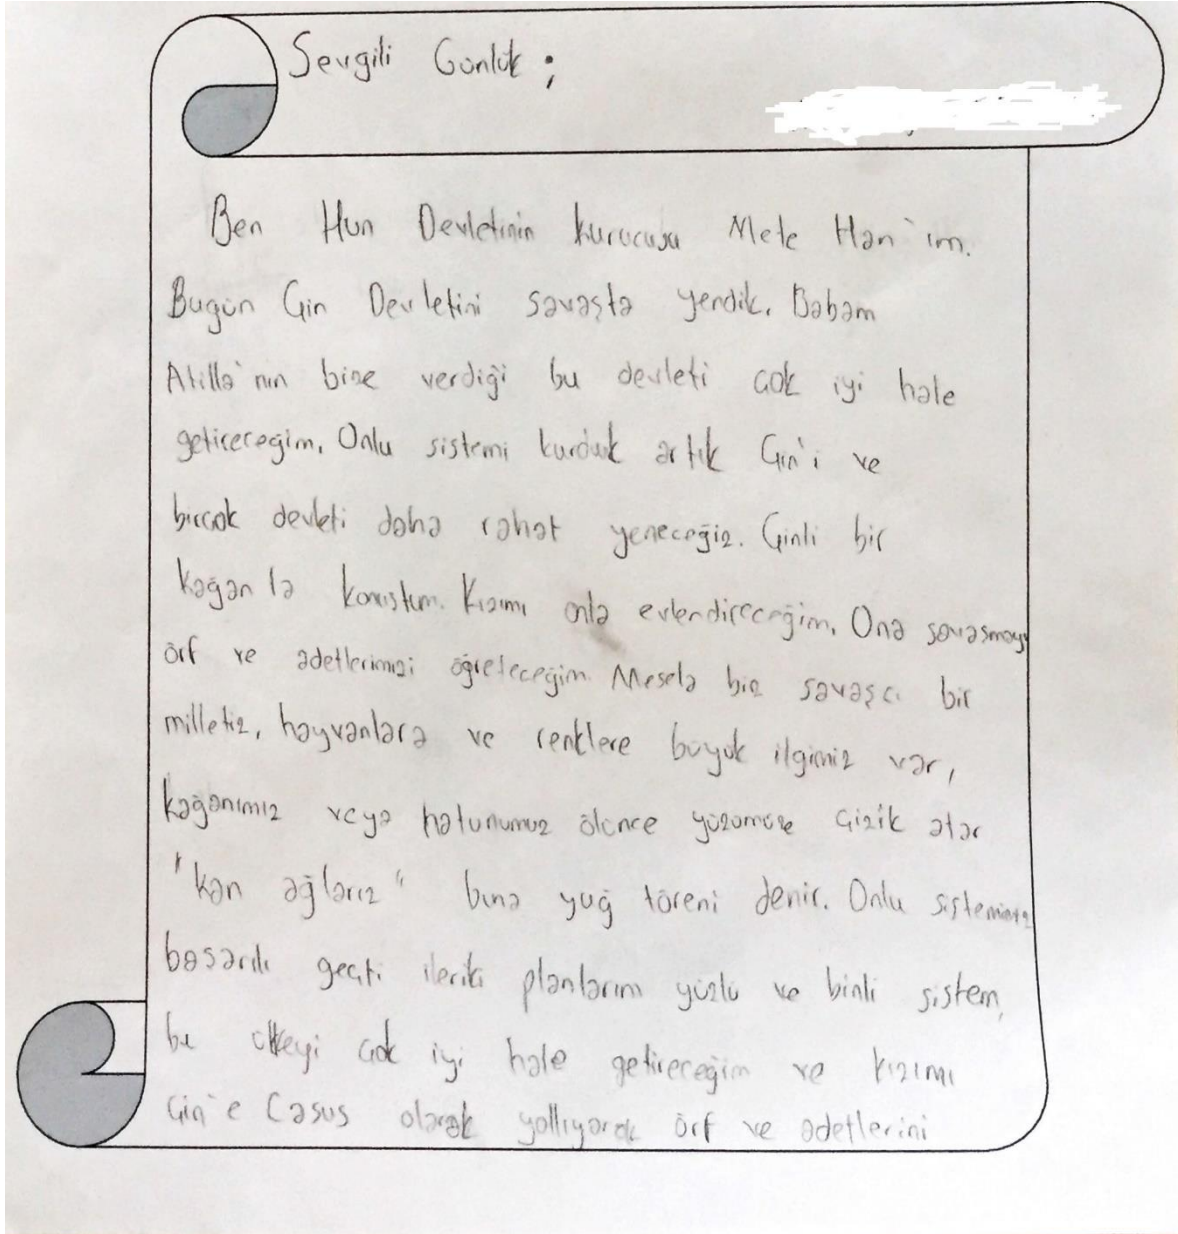 Sevgili Günlük ;
Ben Hun Devletinin kurucusu Mete Han'ım.
Bugün Çin Devletini savaşta yendik. Babam
Atilla'nın bize verdiği bu devleti çok iyi hale
getireceğim. Onlu sistemi kurduk artık Çin'i ve
birçok devleti daha rahat yeneceğiz. Çinli bir
kağan la konuştum. Kızımı onla evlendireceğim. Ona savaşmayı
örf ve adetlerimizi öğreteceğim. Mesela biz savaşcı bir
milletiz, hayvanlara ve renklere büyük ilgimiz var,
kağanımız veya hatunumuz ölünce yüzümüze çizik atar
"kan ağlarız" buna yuğ töreni denir. Onlu sistemimiz
başarılı geçti ileriki planlarım yüzlü ve binli sistem,
bu ülkeyi çok iyi hale getireceğim ve kızımı
Çin'e Casus olarak yollıyarak örf ve adetlerini